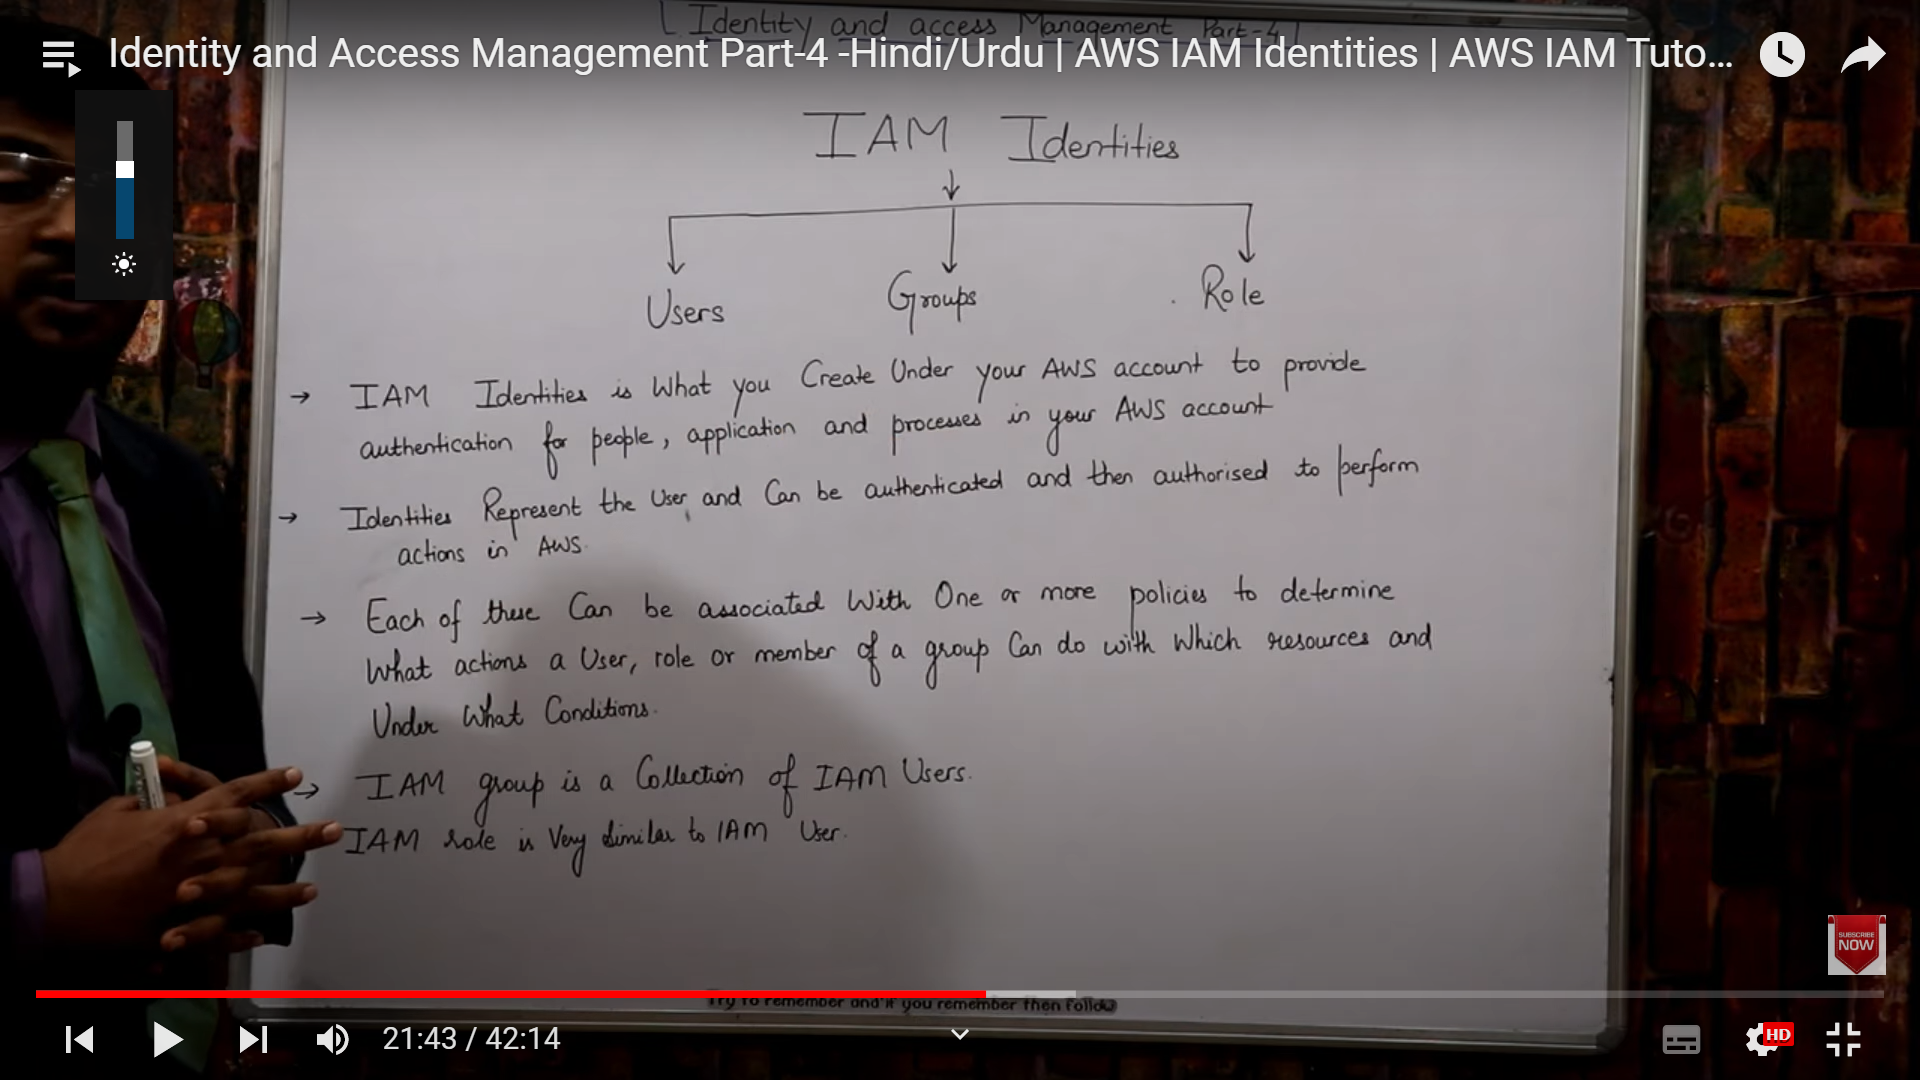 [ Identity and access Management Part-4 ]
Identity and Access Management Part-4 -Hindi/Urdu | AWS IAM Identities | AWS IAM Tuto...
IAM Identities
Users
Groups
Role
→ IAM Identities is What you Create Under your AWS account to provide
authentication for people, application and processes in your AWS account
→ Identities Represent the User, and Can be authenticated and then authorised to perform
actions in AWS.
→ Each of these Can be associated With One or more policies to determine
What actions a User, role or member of a group Can do with Which resources and
Under What Conditions.
→ IAM group is a Collection of IAM Users.
IAM role is Very Similar to IAM User.
SUBSCRIBE
NOW
Try to remember and if you remember then follow
21:43 / 42:14
HD